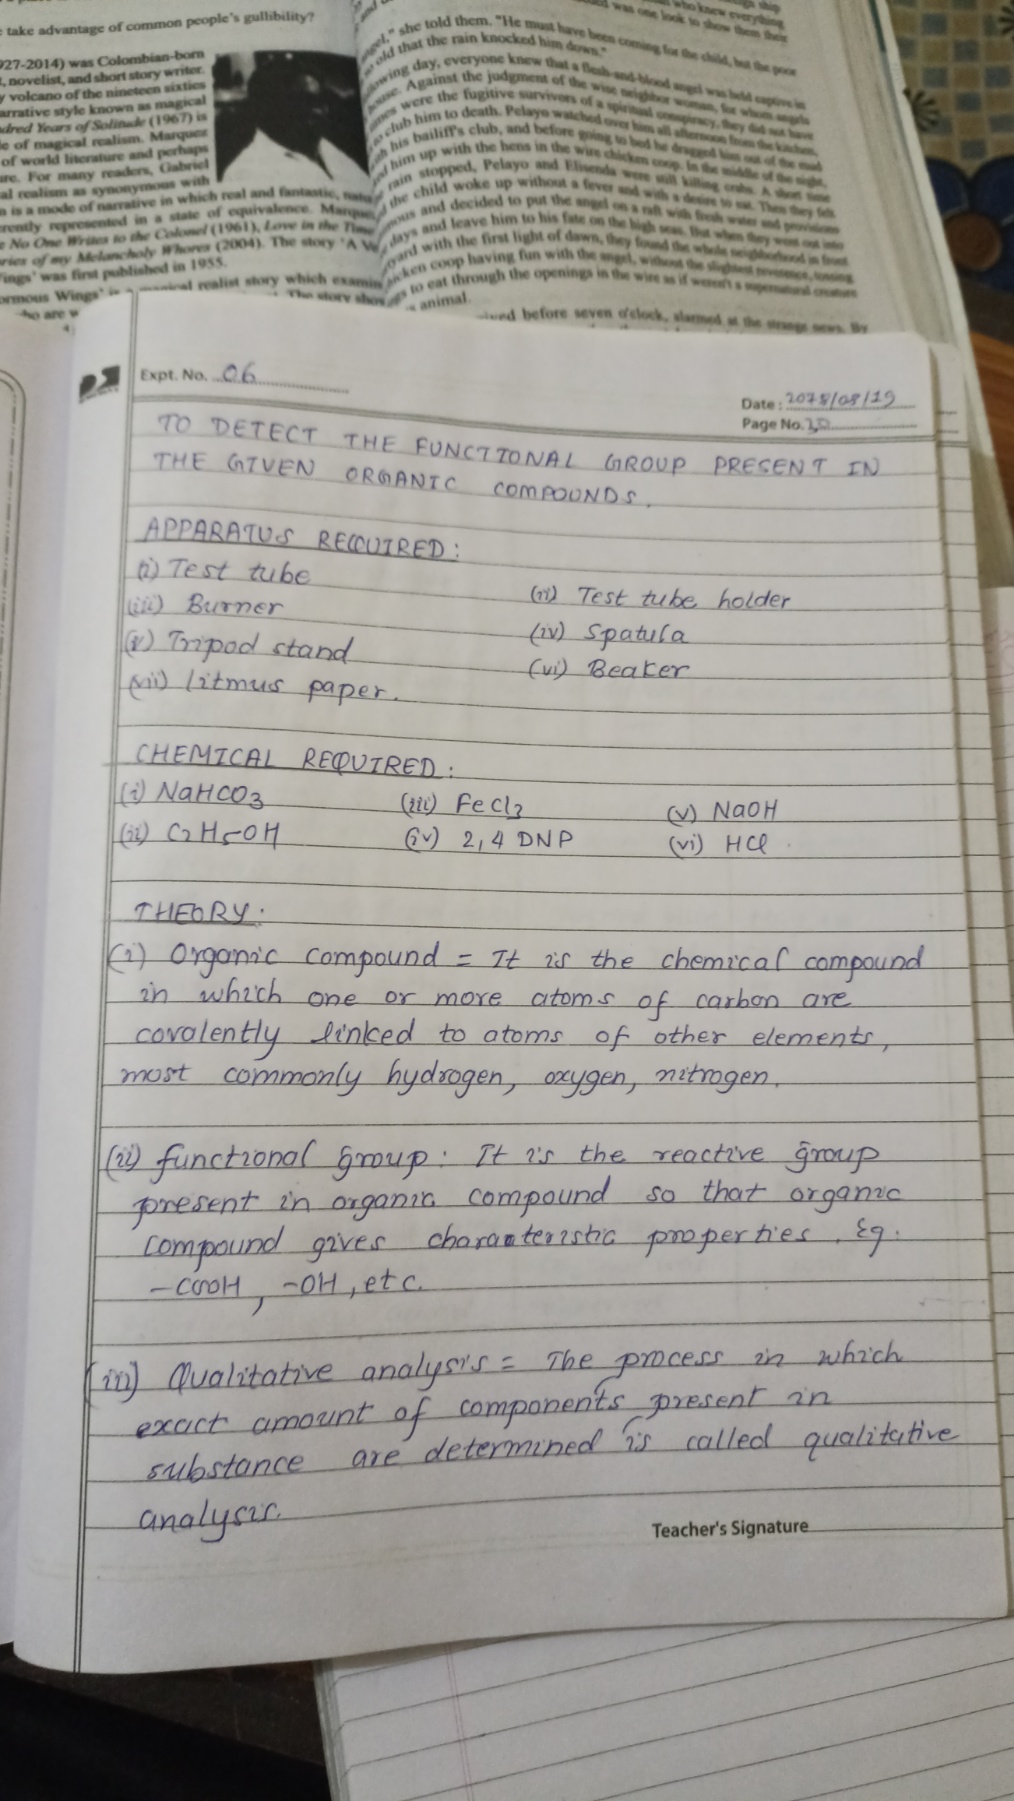 take advantage of common people's gullibility?
927-2014) was Colombian-born
, novelist, and short story writer.
volcano of the nineteen sixties
arrative style known as magical
dred Years of Solitude (1967) is
e of magical realism. Marquez
of world literature and perhaps
ure. For many readers, Gabriel
al realism as synonymous with
n is a mode of narrative in which real and fantastic,
rently represented in a state of equivalence.
No One Writes to the Colonel (1961), Love in the
ries of my Melancholy Whores (2004). The story 'A
ings' was first published in 1955.
ormous Wings' is a magical realist story which
The story
she told them. "He must have been coming for the child, but the poor
old that the rain knocked him down."
owing day, everyone knew that a flesh-and-blood angel was held captive in
house. Against the judgment of the wise neighbor woman, for whom angels
were the fugitive survivors of a spiritual conspiracy, they did not have
club him to death. Pelayo watched over him all afternoon from the kitchen,
his bailiff's club, and before going to bed he dragged him out of the mud
him up with the hens in the wire chicken coop. In the middle of the night,
rain stopped, Pelayo and Elisenda were still killing crabs. A short time
the child woke up without a fever and with a desire to eat. Then they felt
and decided to put the angel on a raft with fresh water and provisions
days and leave him to his fate on the high seas. But when they went out into
yard with the first light of dawn, they found the whole neighborhood in front
icken coop having fun with the angel, without the slightest reverence, tossing
to eat through the openings in the wire as if weren't a supernatural creature
animal.
before seven o'clock, alarmed at the strange news. By
Expt. No. 06
Date: 2078/08/19
Page No.
TO DETECT THE FUNCTIONAL GROUP PRESENT IN
THE GIVEN ORGANIC COMPOUNDS.
APPARATUS REQUIRED:
(i) Test tube (ii) Test tube holder
(iii) Burner (iv) Spatula
(v) Tripod stand (vi) Beaker
(vii) litmus paper.
CHEMICAL REQUIRED:
(i) NaHCO3 (iii) FeCl3 (v) NaOH
(ii) C2H5OH (iv) 2,4 DNP (vi) HCl
THEORY:
(i) Organic compound = It is the chemical compound
in which one or more atoms of carbon are
covalently linked to atoms of other elements,
most commonly hydrogen, oxygen, nitrogen.
(ii) functional group: It is the reactive group
present in organic compound so that organic
compound gives characteristic properties. Eg:
-COOH, -OH, etc.
(iii) Qualitative analysis = The process in which
exact amount of components present in
substance are determined is called qualitative
analysis.
Teacher's Signature